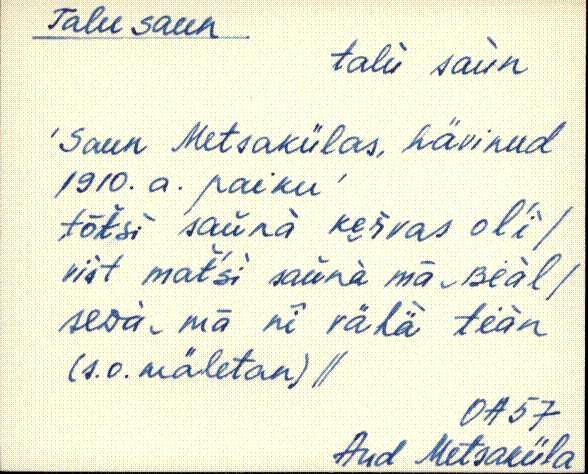 Talu saun
talù saùn
'Saun Metsakülas, hävinud
1910. a. paiku'
tōt́si saùnà keřvas ol'i /
vist mat́si saùnà mā‿Bèàl /
seDà‿mā nī vähä̀ teàn
(s.o. mäletan) //
OA 57
And Metsaküla